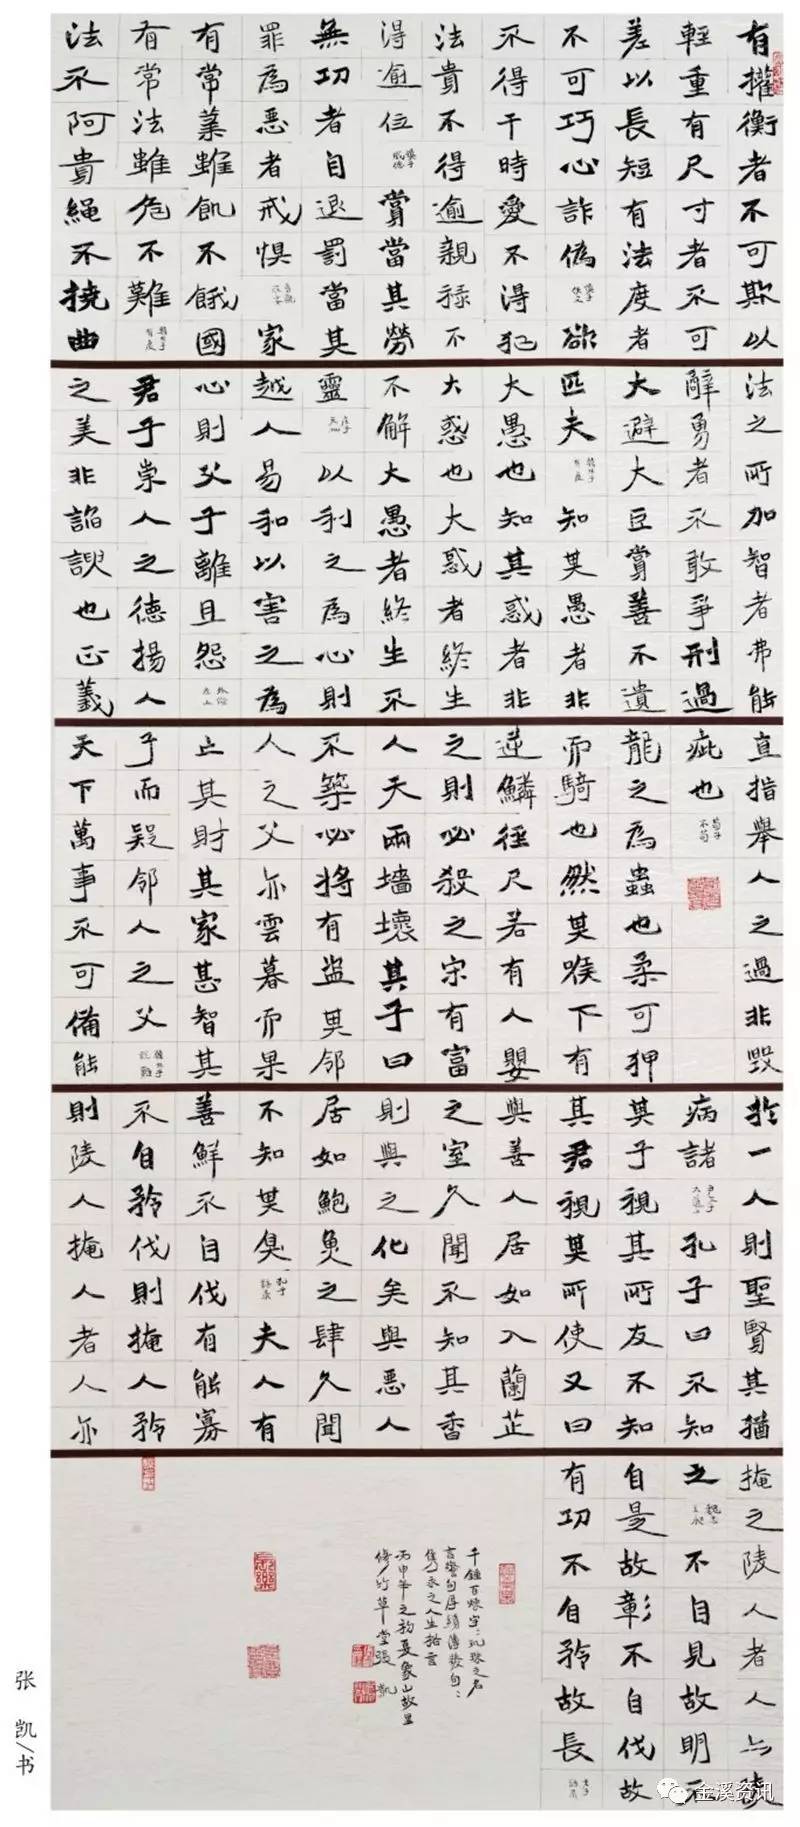 有權衡者不可欺以
輕重有尺寸者不可
差以長短有法度者
不可巧心詐偽慎子佚文欲
不得干時愛不得犯
法貴不得逾親祿不
得逾位慎子威德賞當其勞
無功者自退罰當其
罪為惡者戒惧貞觀政要家
有常業雖飢不餓國
有常法雖危不難韓非子有度
法不阿貴繩不撓曲
法之所加智者弗能
辭勇者不敢爭刑過
大避大豆賞善不遺
匹夫韓非子有度知其愚者非
大愚也知其惑者非
大惑也大惑者終生
不解大愚者終生不
靈莊子天地以利之為心則
越人易和以害之為
心則父子離且怨外儲左上
君子崇人之德揚人
之美非諂諛也正義
直指舉人之過非毀
疵也荀子不苟
龍之為蟲也柔可狎
而騎也然其喉下有
逆鱗徑尺若有人嬰
之則必殺之宋有富
人天雨墻壞其子曰
不築必將有盜其邻
人之父亦雲暮而果
亡其財其家甚智其
子而疑邻人之父韓非子說難
天下萬事不可備能
於一人則聖賢其猶
病諸尹文子大道上孔子曰不知
其子視其所友不知
其君視其所使又曰
與善人居如入蘭芷
之室久聞不知其香
則與之化矣與惡人
居如鮑魚之肆久聞
不知其臭孔子語录夫人有
善鮮不自伐有能寡
不自矜伐則掩人矜
則陵人掩人者人亦
掩之陵人者人亦陵
之魏志王昶不自見故明不
自是故彰不自伐故
有功不自矜故長老子語录
千錘百煉字:玑珠之名
言警句厚積薄發句:
隽永之人生格言
丙申年之初夏象山故里
修竹草堂張凱
张凯/书
金溪资讯